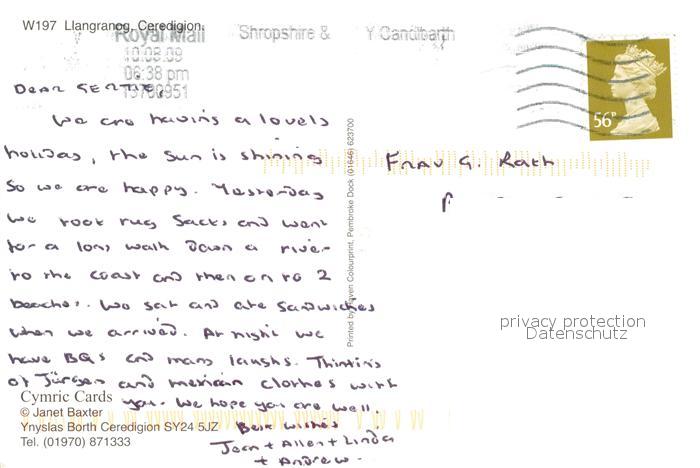 W197 Llangranog, Ceredigion.
Royal Mail Shropshire & Y Canolbarth
10.08.09
06:38 pm
13780951
56P
DEAR GERTIE,
We are having a lovely
holiday, the sun is shining
So we are happy. Yesterday
we took rug sacks and went
for a long walk down a river
to the coast and then on to 2
beaches. We sat and ate sandwiches
when we arrived. At night we
have BQs and many laughs. Thinking
of Jürgen and mexican clothes with
you. We hope you are well.
Best wishes
Jean + Allen + Linda
+ Andrew.
Cymric Cards
© Janet Baxter
Ynyslas Borth Ceredigion SY24 5JZ
Tel. (01970) 871333
Printed by Haven Colourprint, Pembroke Dock (01646) 623700
FRAU G. Rath
privacy protection
Datenschutz